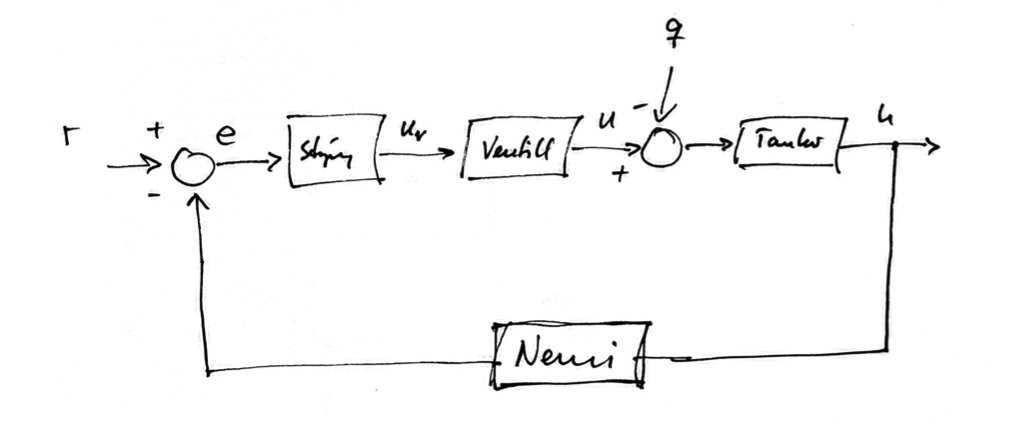 q
r + e Stýring u_r Ventill u - + Tankur h
-
Nemi